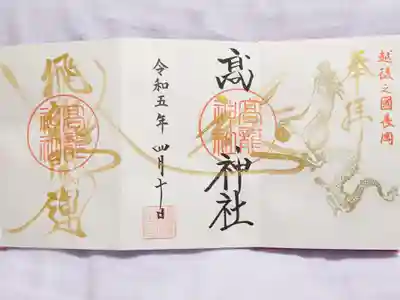 越後之國長岡
奉拝
髙龍神社
高龍神社
令和五年 四月十日
高龍神社